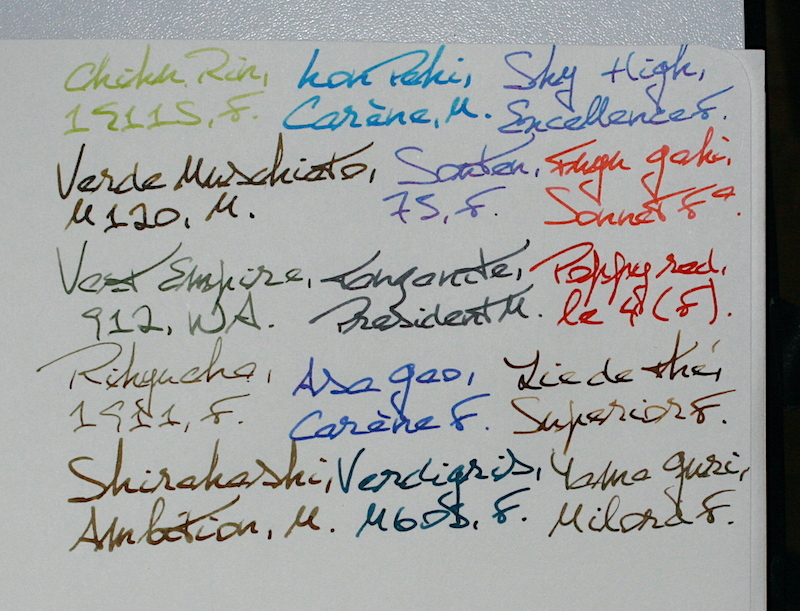 Chiku Rin, kon Peki, Sky High,
1911S, F. Carène, M. Excellence F.
Verde Muschiato, Souten, Fuyu gaki,
M120, M. 7S, F. Sonnet F
Vert Empire, Tanzanite, Poppy red,
912, WA. President M. le 4 (F).
Rikyucha, Asa gao, Lie de thé,
1911, F. Carène F. Superior F.
Shirakashi, Verdigris, Yama guri,
Ambition, M. M605, F. Milord F.